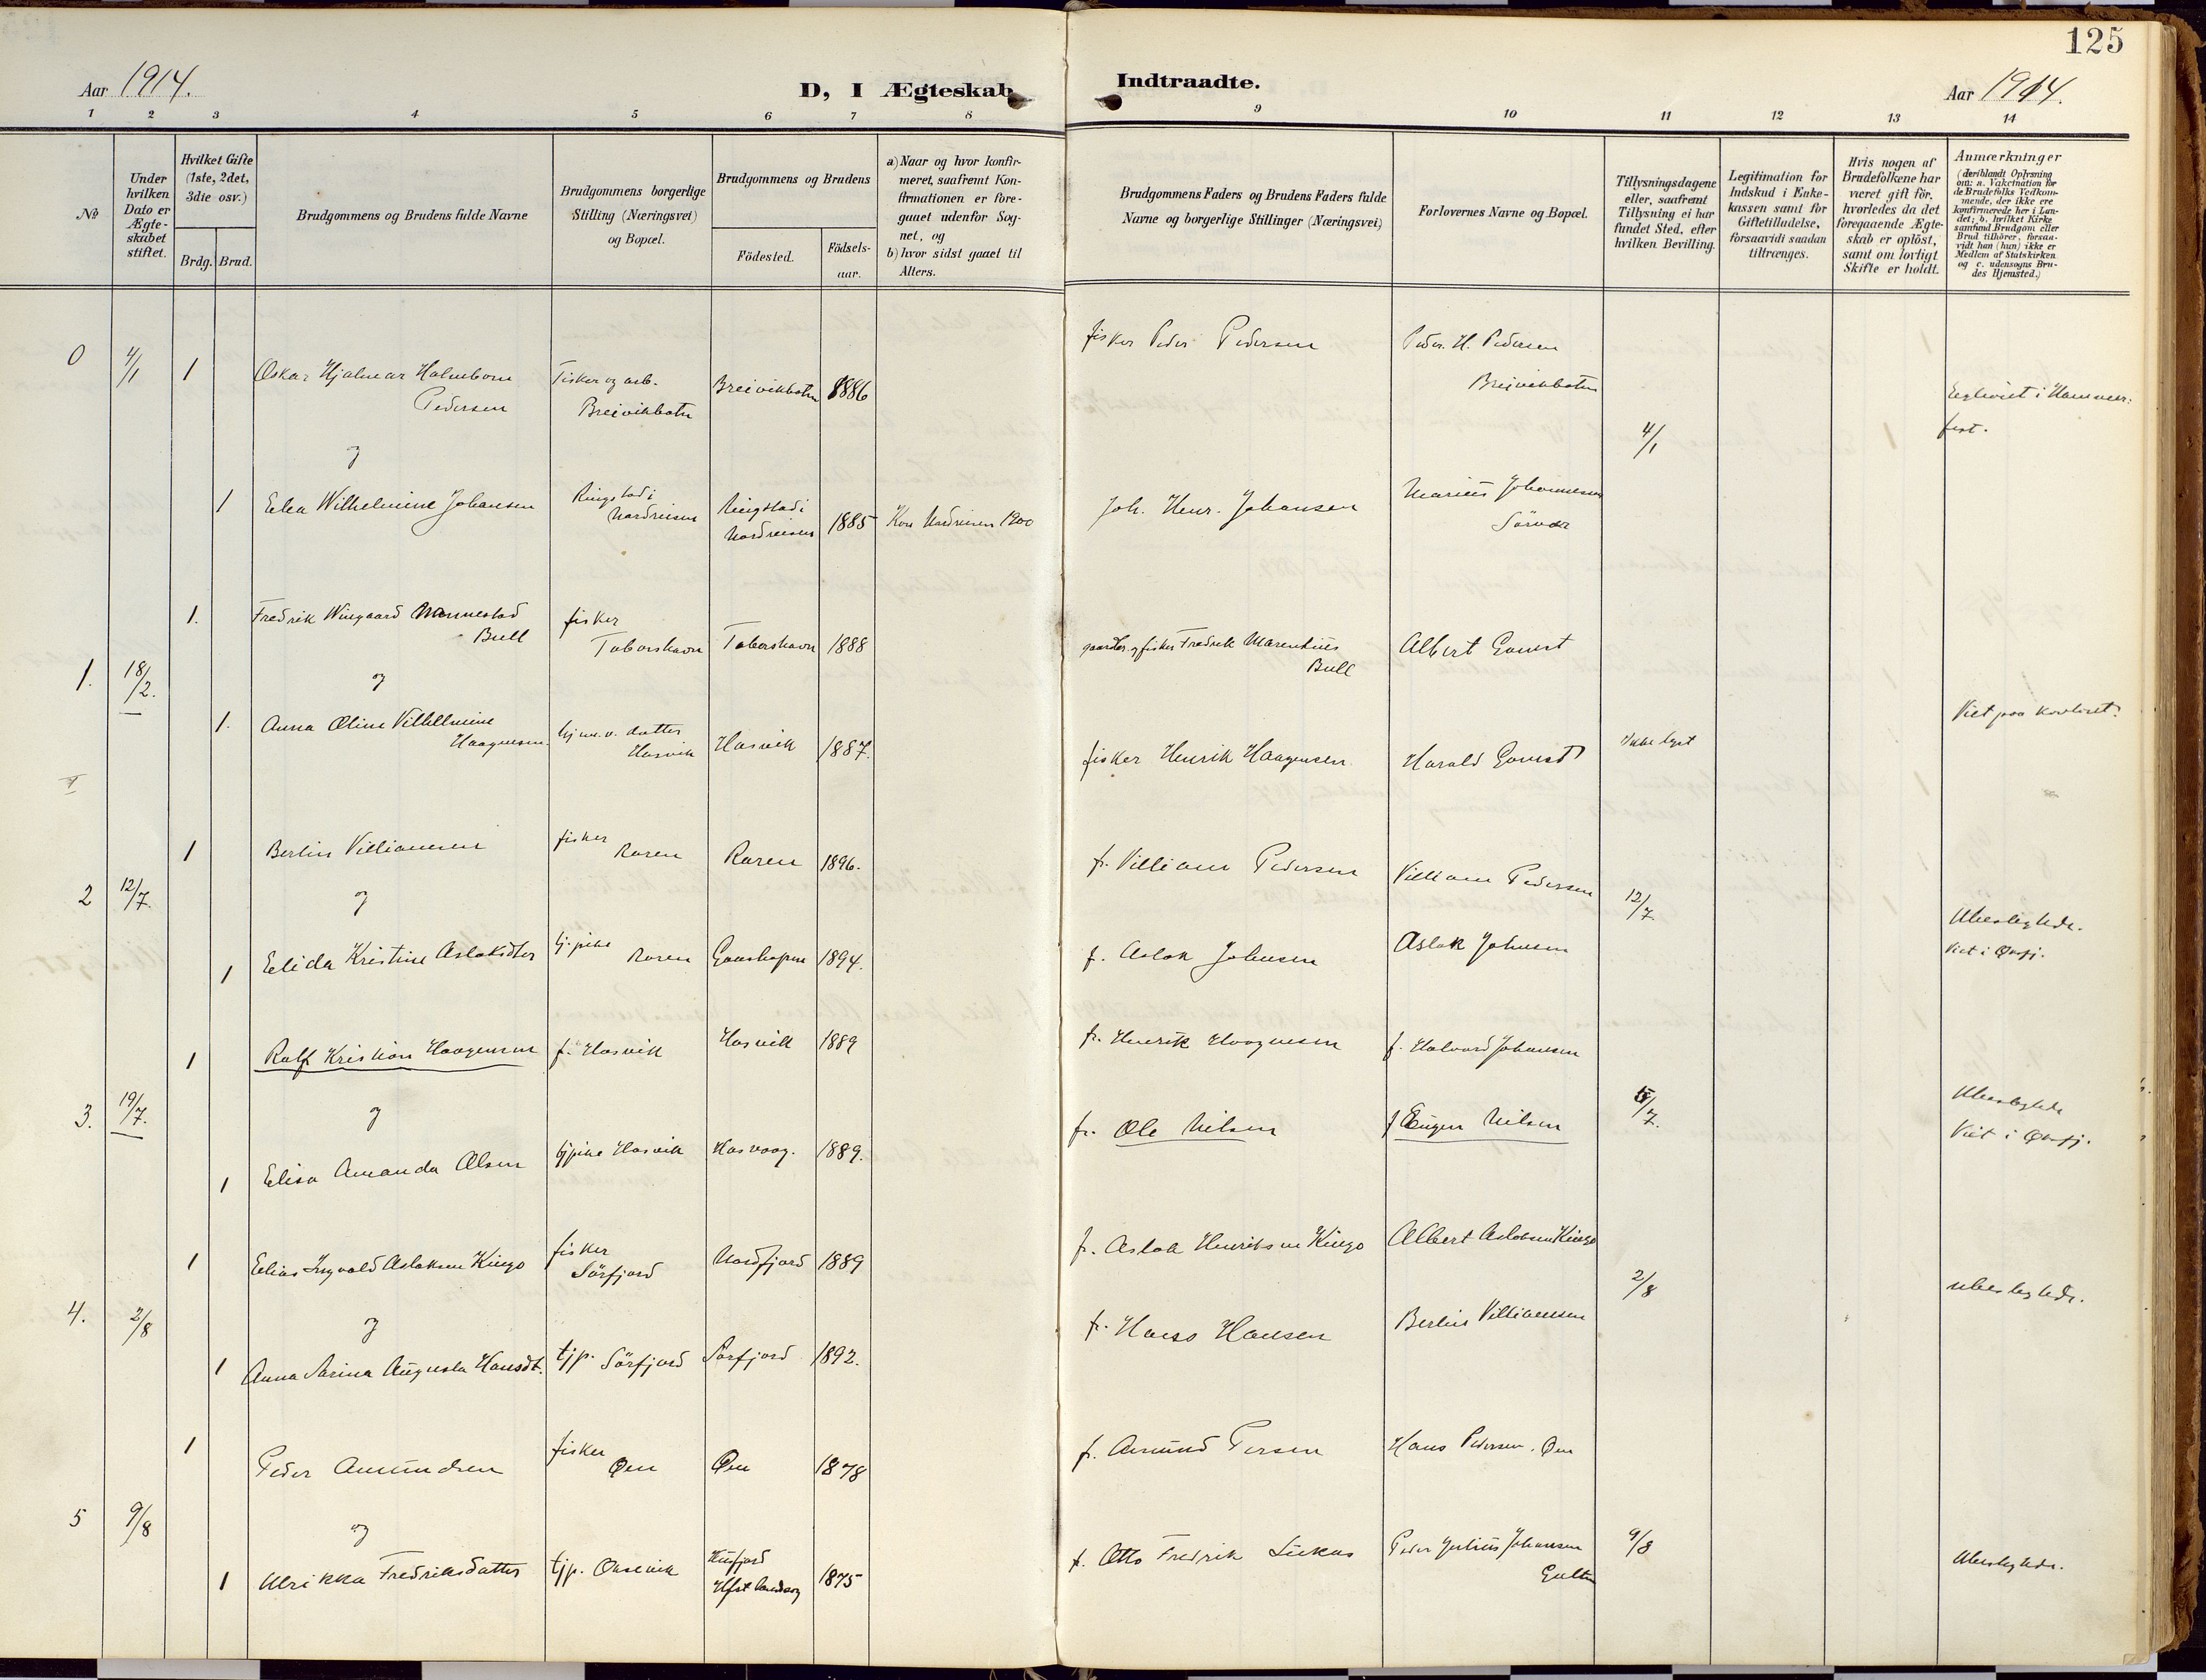 125
Aar 1914.
D, I Ægteskab
Indtraadte.
Aar 1914.
1 2 3 4 5 6 7 8 9 10 11 12 13 14
No
Under hvilken Dato er Ægteskabet stiftet.
Hvilket Gifte (1ste, 2det, 3die osv.)
Brdg. Brud.
Brudgommens og Brudens fulde Navne
Brudgommens borgerlige Stilling (Næringsvei) og Bopæl.
Brudgommens og Brudens
Födested.
Födselsaar.
a) Naar og hvor konfirmeret, saafremt Konfirmationen er foregaaet udenfor Sognet, og
b) hvor sidst gaaet til Alters.
Brudgommens Faders og Brudens Faders fulde Navne og borgerlige Stillinger (Næringsvei)
Forlovernes Navne og Bopæl.
Tillysningsdagene eller, saafremt Tillysning ei har fundet Sted, efter hvilken Bevilling.
Legitimation for Indskud i Enkekassen samt for Giftetilladelse, forsaavidt saadan tiltrænges.
Hvis nogen af Brudefolkene har været gift för, hvorledes da det foregaaende Ægteskab er oplöst, samt om lovligt Skifte er holdt.
Anmærkninger (deriblandt Oplysning om: a. Vakcination for de Brudefolks Vedkommende, der ikke ere konfirmerede her i Landet; b. hvilket Kirkesamfund Brudgom eller Brud tilhörer, forsaavidt han (hun) ikke er Medlem af Statskirken og c. udensogns Brudes Hjemsted.)
0 4/1 1 Oskar Hjalmar Holmbom Pedersen
Fisker og arb. Breivikbotn
Breivikbotn 1886
fisker Peder Pedersen
Peder H. Pedersen Breivikbotn
4/1
og
1 Elea Wilhelmine Johansen
Ringstad i Nordreisen
Ringstad i Nordreisen 1885 Kon Nordreisen 1900
Joh. Henr. Johansen
Marius Johannesen Sörvær
1. 18/2. 1. Fredrik Wiugaard Mannestad Bull
fisker Taborshavn
Taborshavn 1888
gaardbr. og fisker Fredrik Marentius Bull
Albert Gamst
og
1. Anna Oline Vilhelmine Haagensen
hjmv. datter Hasvik
Hasvik 1887.
fisker Henrik Haagensen
Harald Gamst
Ikke lyst
Viet paa kontoret.
2 12/7. 1 Berlin Villiamsen
fisker Raren
Raren 1896.
f. Villiam Pedersen
Villiam Pedersen
12/7
og
1 Elida Kristine Aslaksdtr
tj. pike Raren
Gaashopen 1894.
f. Aslak Johnsen
Aslak Johnsen
Ubeslegtede.
Viet i Øksfj.
3. 19/7. 1 Rolf Kristian Haagensen
f. Hasvik
Hasvik 1889
f. Henrik Haagensen
f. Halvard Johansen
5/7.
og
1 Elisa Amanda Olsen
tjpike Hasvik
Hasvaag. 1889.
f. Ole Nilsen
f Eugen Nilsen
Ubeslegtede
Viet i Øksfj.
4. 2/8 1 Elias Ingvald Aslaksen Kingo
fisker Sörfjord
Nordfjord 1889
f. Aslak Henriksen Kingo
Albert Aslaksen Kingo
2/8
og
1 Anna Sarina Augusta Hansdt.
tjp. Sörfjord
Sörfjord 1892.
f. Hans Hansen
Berlin Villiamsen
ubeslegtede.
5 9/8 1 Peder Amundsen
fisker Øen
Øen 1878
f. Amund Persen
Hans Pedersen. Øen
og
1 Ulrikka Fredriksdatter
tjp. Oksevik
Kufjord Hfst landsog 1875
f. Otto Fredrik Lukas
Peder Julius Johansen Galten
9/8
Ubeslegtede.